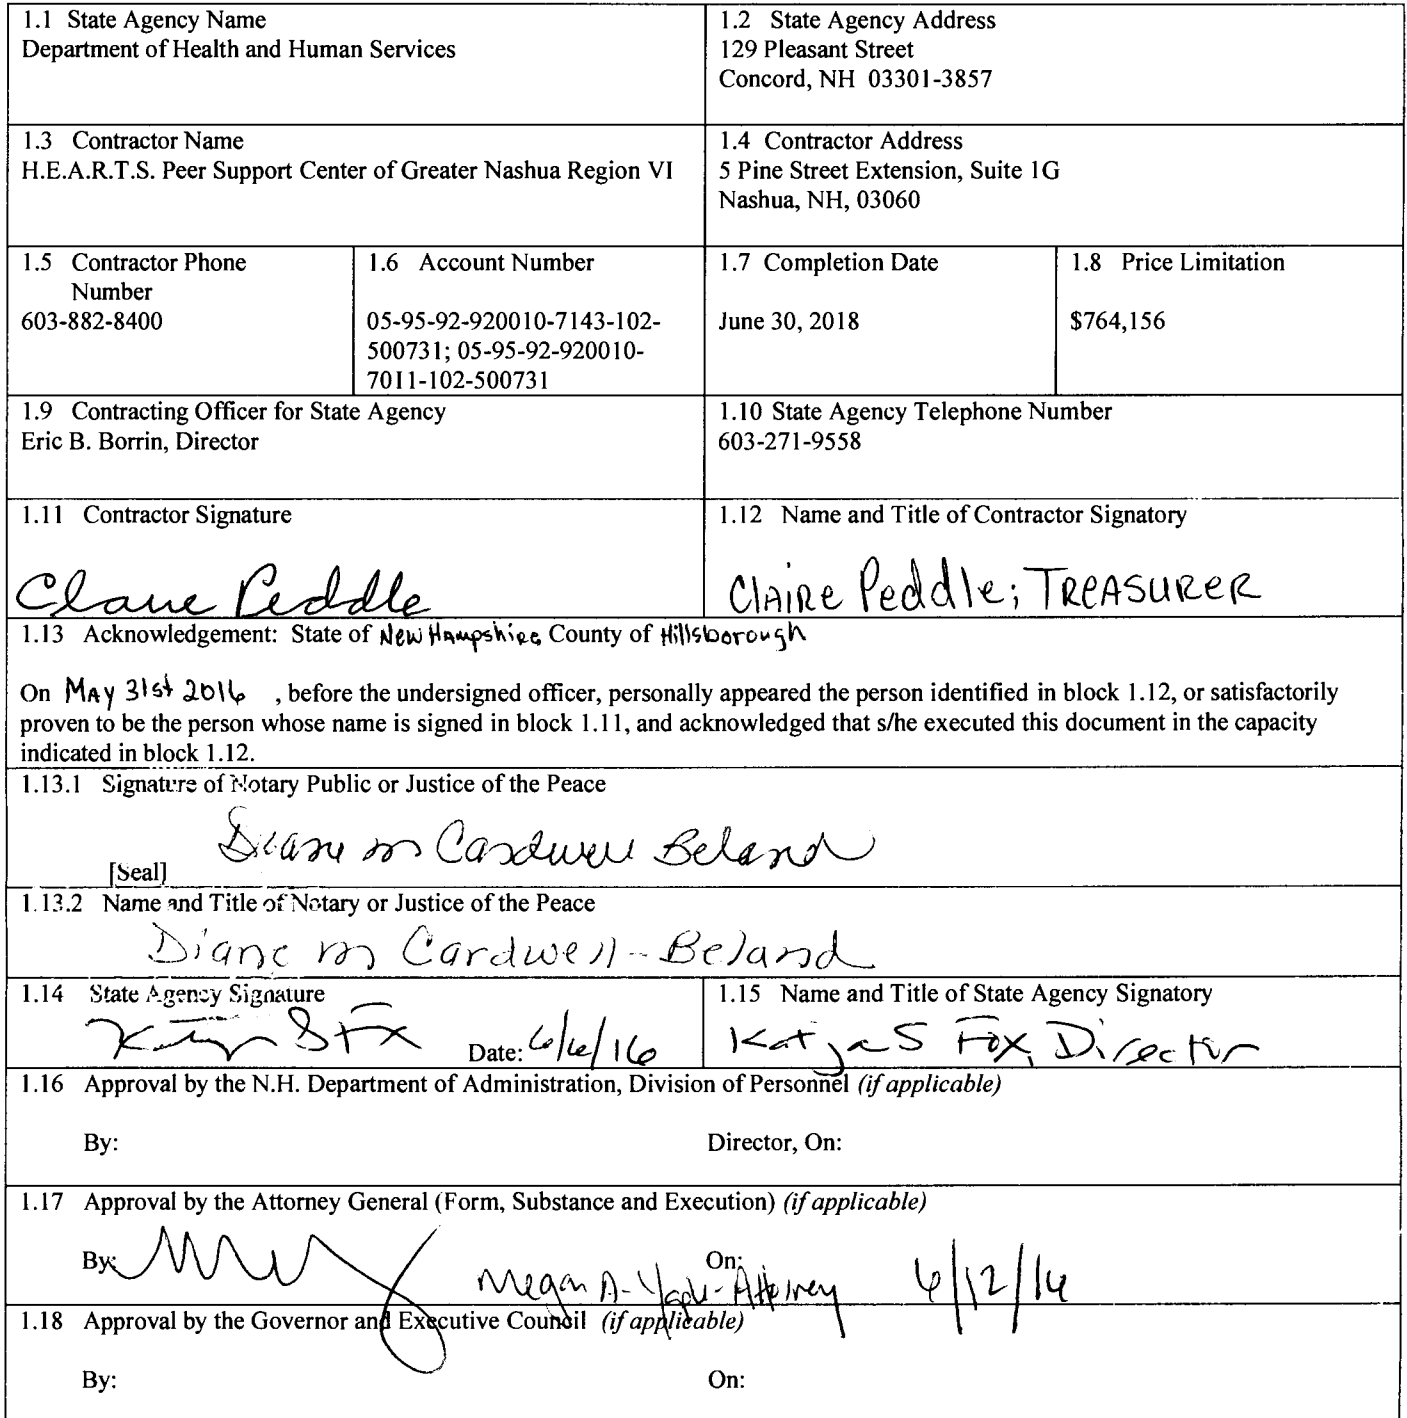 1.1 State Agency Name
Department of Health and Human Services
1.2 State Agency Address
129 Pleasant Street
Concord, NH 03301-3857
1.3 Contractor Name
H.E.A.R.T.S. Peer Support Center of Greater Nashua Region VI
1.4 Contractor Address
5 Pine Street Extension, Suite 1G
Nashua, NH, 03060
1.5 Contractor Phone
Number
603-882-8400
1.6 Account Number
05-95-92-920010-7143-102-
500731; 05-95-92-920010-
7011-102-500731
1.7 Completion Date
June 30, 2018
1.8 Price Limitation
$764,156
1.9 Contracting Officer for State Agency
Eric B. Borrin, Director
1.10 State Agency Telephone Number
603-271-9558
1.11 Contractor Signature
Claire Peddle
1.12 Name and Title of Contractor Signatory
Claire Peddle; TREASURER
1.13 Acknowledgement: State of New Hampshire County of Hillsborough
On MAY 31st 2016 , before the undersigned officer, personally appeared the person identified in block 1.12, or satisfactorily
proven to be the person whose name is signed in block 1.11, and acknowledged that s/he executed this document in the capacity
indicated in block 1.12.
1.13.1 Signature of Notary Public or Justice of the Peace
Diane m Cardwell Beland
[Seal]
1.13.2 Name and Title of Notary or Justice of the Peace
Diane m Cardwell-Beland
1.14 State Agency Signature
Date: 6/6/16
1.15 Name and Title of State Agency Signatory
Katja S Fox, Director
1.16 Approval by the N.H. Department of Administration, Division of Personnel (if applicable)
By: Director, On:
1.17 Approval by the Attorney General (Form, Substance and Execution) (if applicable)
By: On:
Megan A. - Attorney 6/12/16
1.18 Approval by the Governor and Executive Council (if applicable)
By: On: